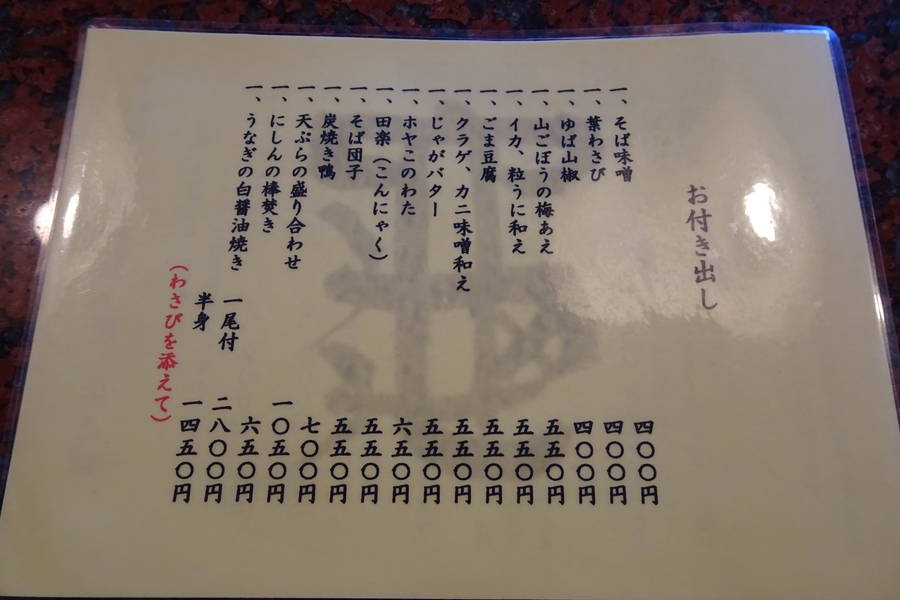 お付き出し
一、そば味噌 四〇〇円
一、葉わさび 四〇〇円
一、ゆば山椒 四〇〇円
一、山ごぼうの梅あえ 五五〇円
一、イカ、粒うに和え 五五〇円
一、ごま豆腐 五五〇円
一、クラゲ、カニ味噌和え 五五〇円
一、じゃがバター 五五〇円
一、ホヤこのわた 六五〇円
一、田楽(こんにゃく) 五五〇円
一、そば団子 五五〇円
一、炭焼き鴨 七〇〇円
一、天ぷらの盛り合わせ 一〇五〇円
一、にしんの棒焚き 六五〇円
一、うなぎの白醤油焼き 一尾付 二八〇〇円
半身 一四五〇円
(わさびを添えて)